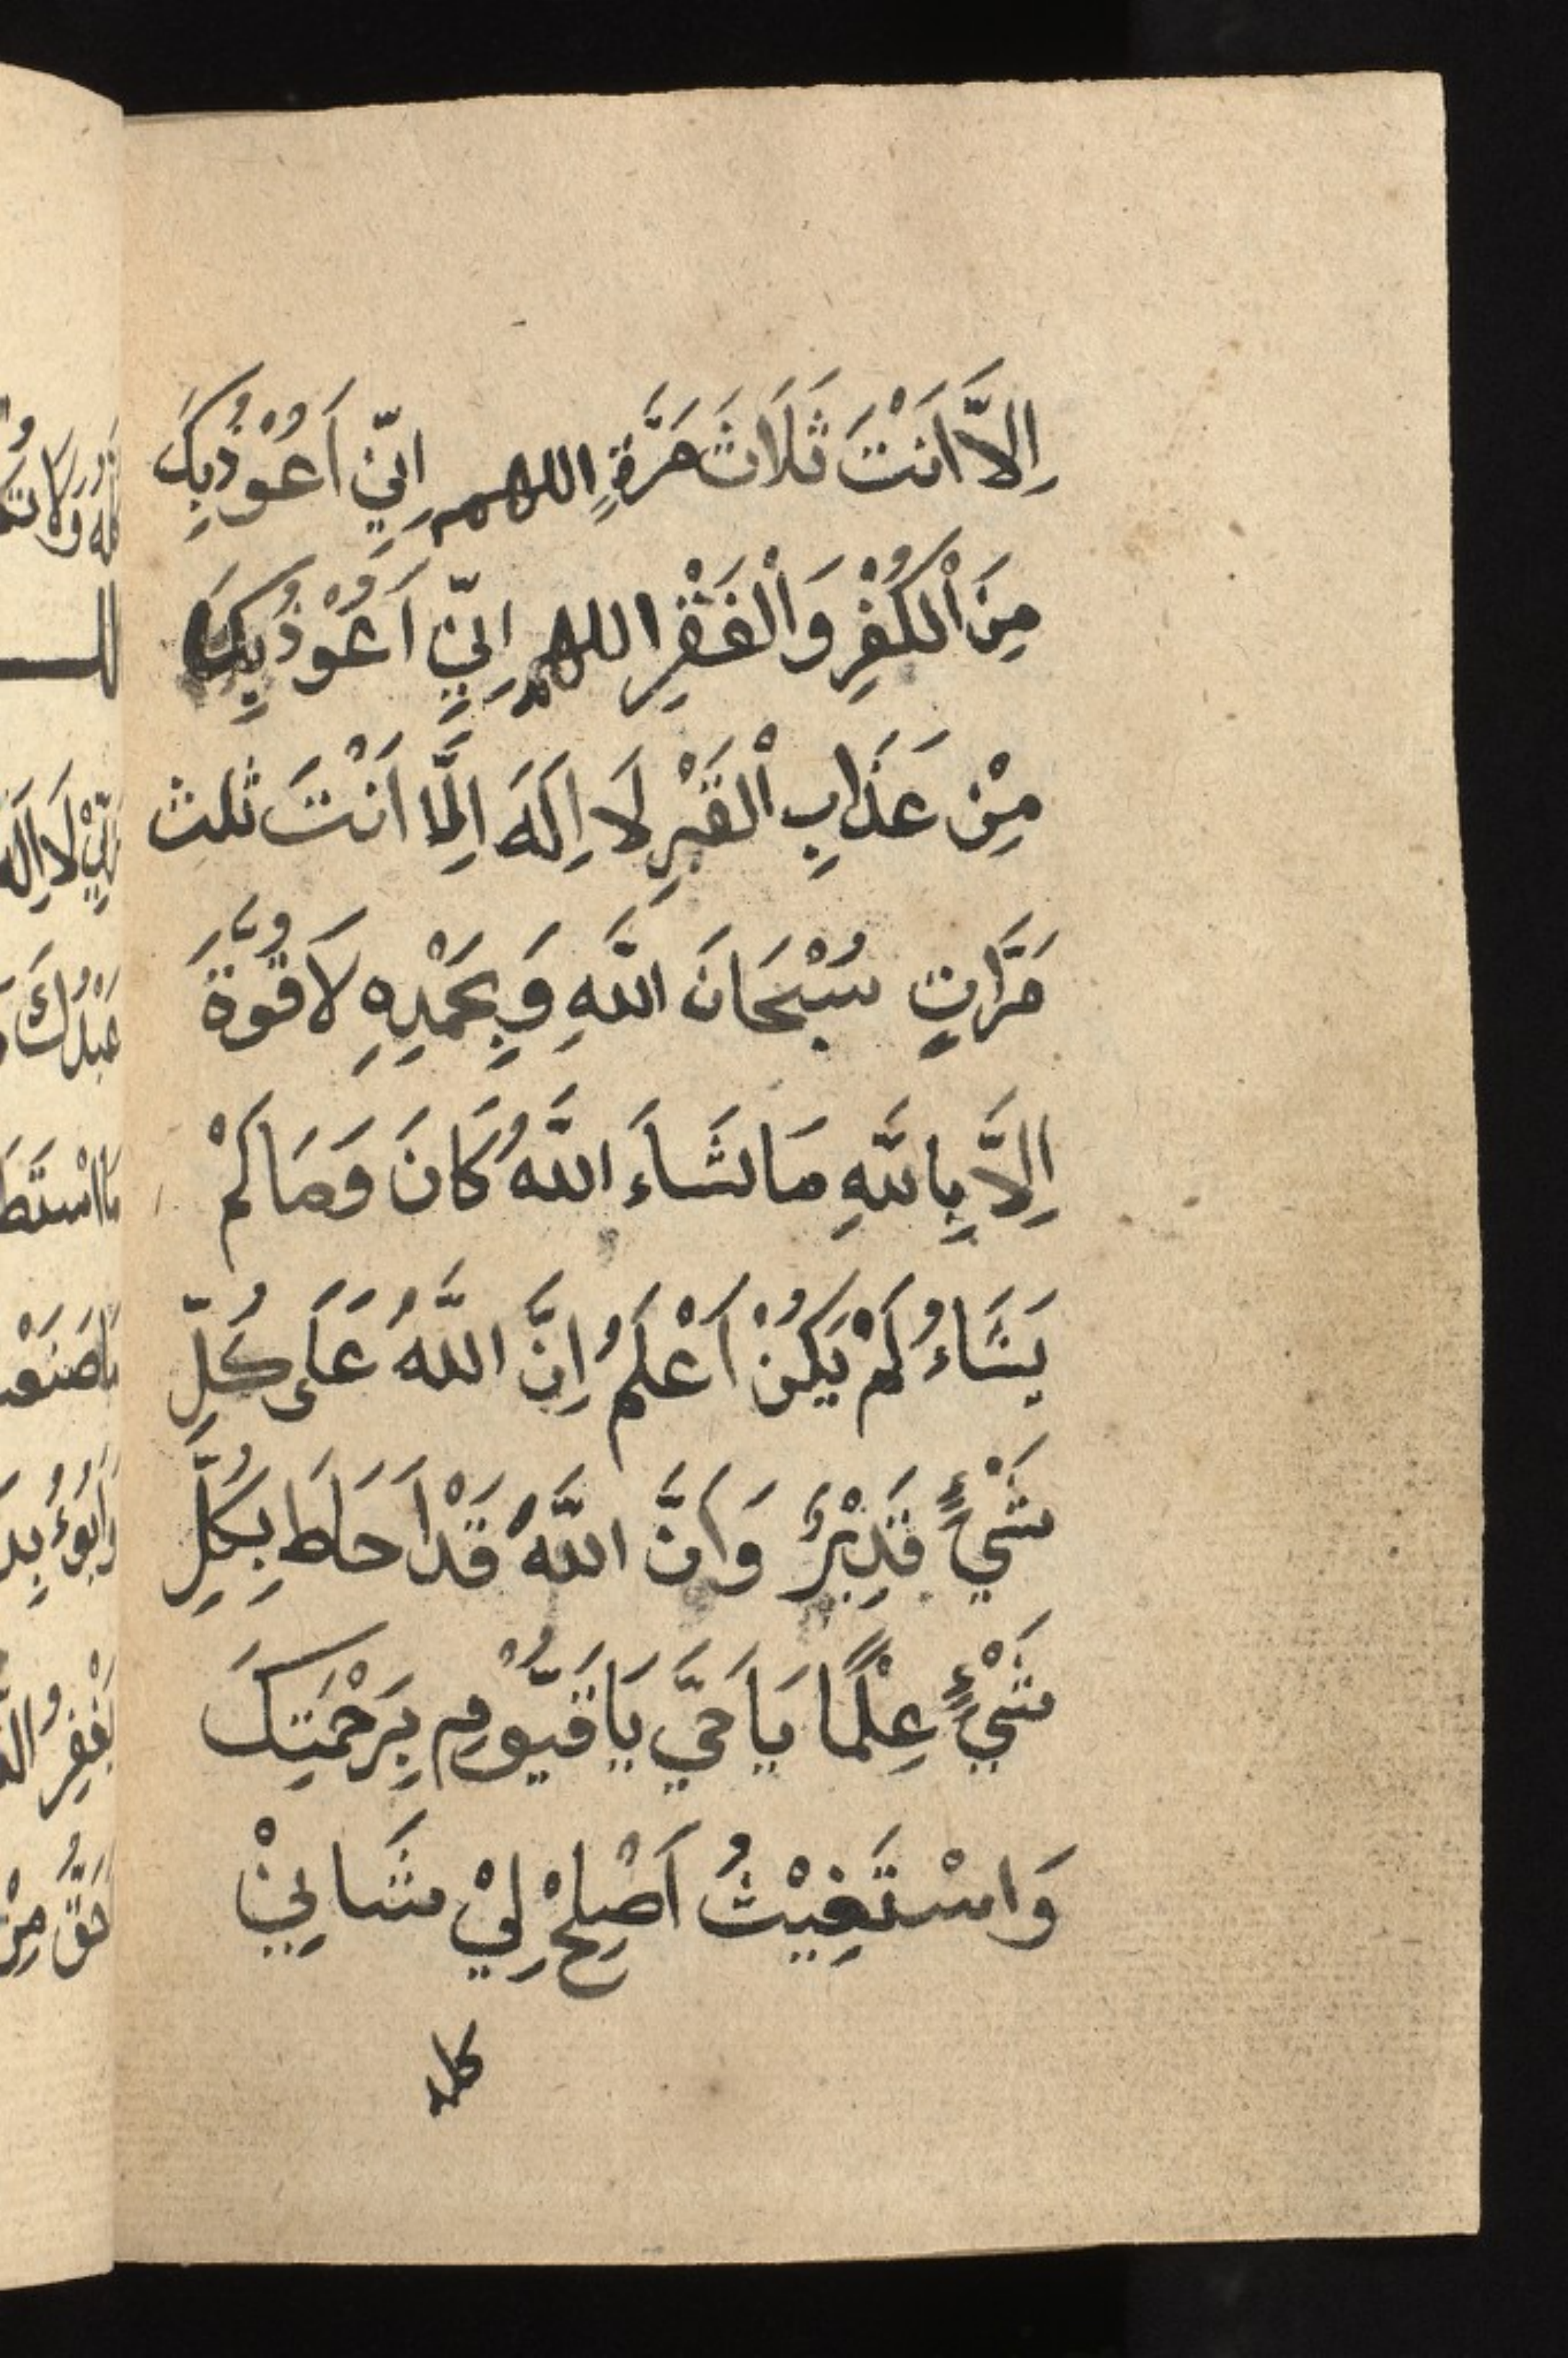 اِلَّا اَنْتَ ثَلَاثَ مَرَّةٍ اللهم اِنِّي اَعُوْذُبِكَ
مِنَ اْلكُفْرِ وَاْلفَقْرِ اللهم اِنِّي اَعُوْذُبِكَ
مِنْ عَذَابِ اْلقَبْرِ لَا اِلَهَ اِلَّا اَنْتَ ثلث
مَرَّاتٍ سُبْحَانَ اللَّهِ وَبِحَمْدِهِ لَا قُوَّةَ
اِلَّا بِاللَّهِ مَا شَاءَ اللَّهُ كَانَ وَمَا لَمْ
يَشَاءُ لَمْ يَكُنْ اَعْلَمُ اِنَّ اللَّهُ عَلَى كُلِّ
شَيْءٍ قَدِيْرٌ وَاَنَّ اللَّهُ قَدْ اَحَاطَ بِكُلِّ
شَيْءٍ عِلْمًا يَا حَيَّ يَا قَيُّوْمِ بِرَحْمَتِكَ
وَاسْتَغِيْثُ اَصْلِحْ لِيْ شَانِيْ
كله